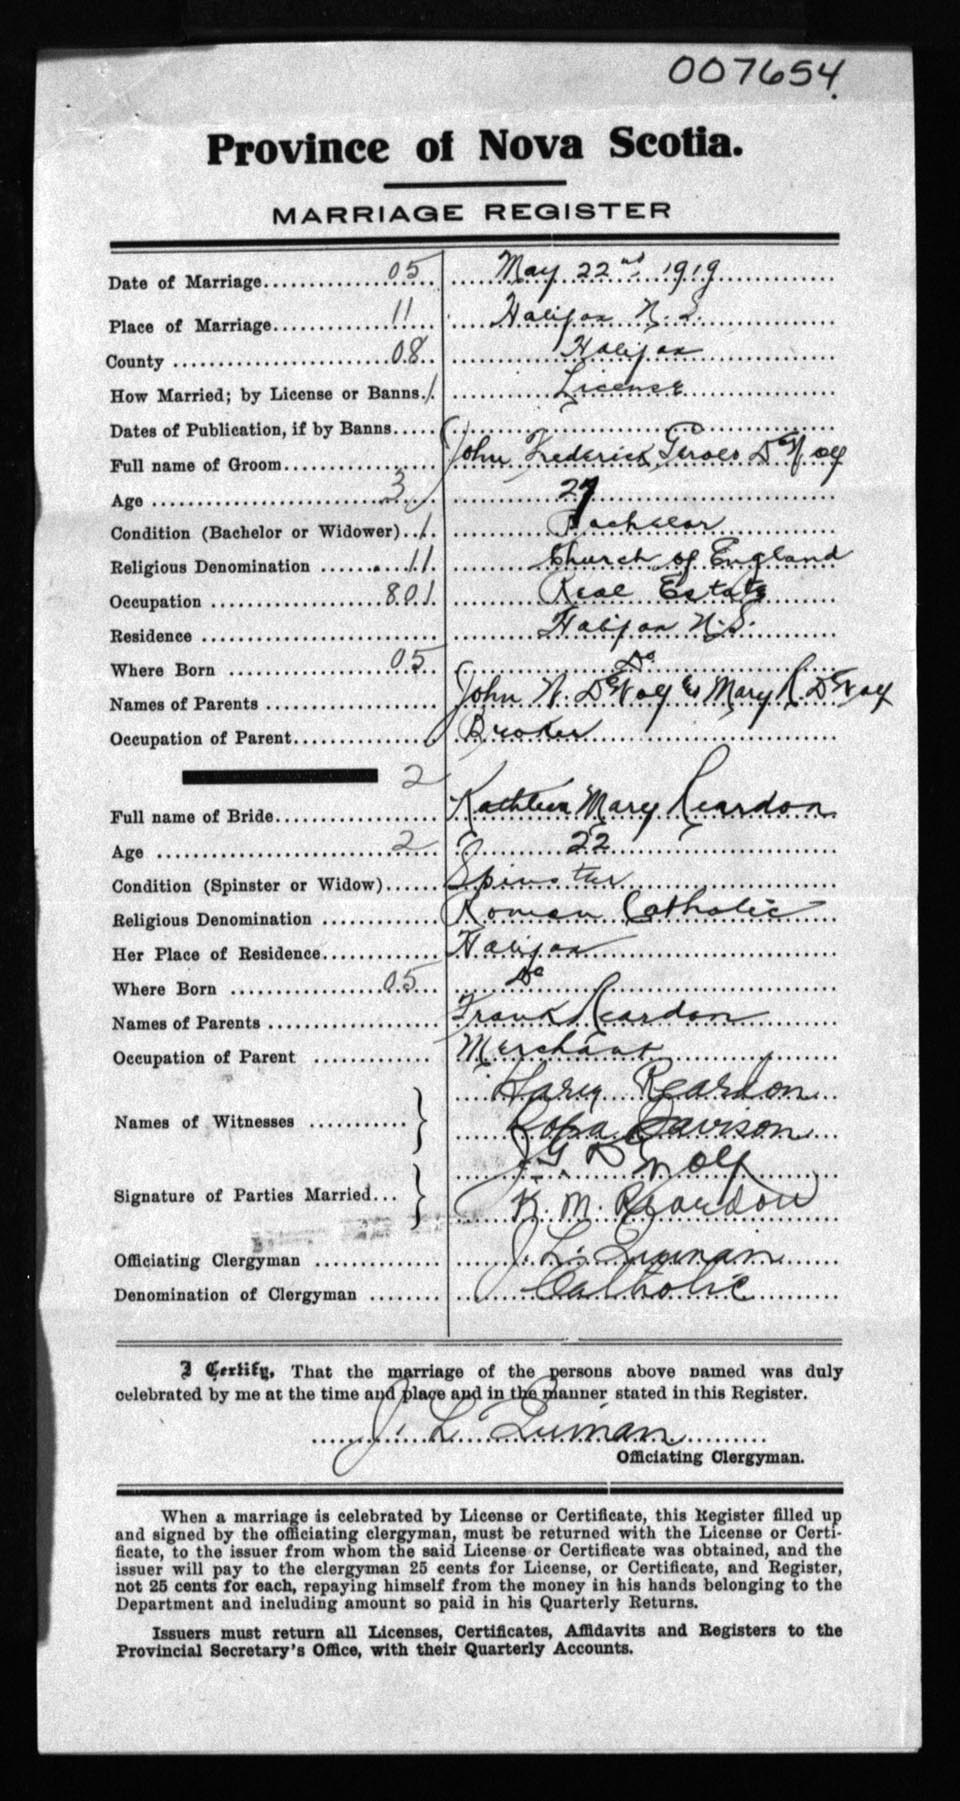 007654
Province of Nova Scotia.
MARRIAGE REGISTER
Date of Marriage 05 May 22nd 1919
Place of Marriage 11 Halifax N.S.
County 08 Halifax
How Married; by License or Banns 1 License
Dates of Publication, if by Banns
Full name of Groom John Frederick DeWolf
Age 3 27
Condition (Bachelor or Widower) 1 Bachelor
Religious Denomination 11 Church of England
Occupation 801 Real Estate
Residence Halifax N.S.
Where Born 05 Do
Names of Parents John W. DeWolf & Mary R. DeWolf
Occupation of Parent Broker
2
Full name of Bride Kathleen Mary Reardon
Age 2 22
Condition (Spinster or Widow) Spinster
Religious Denomination Roman Catholic
Her Place of Residence Halifax
Where Born 05 Do
Names of Parents Frank Reardon
Occupation of Parent Merchant
Names of Witnesses } Harry Reardon
Davison
Signature of Parties Married } J. DeWolf
K. M. Reardon
Officiating Clergyman J. L.
Denomination of Clergyman Catholic
I Certify, That the marriage of the persons above named was duly
celebrated by me at the time and place and in the manner stated in this Register.
J. L.
Officiating Clergyman.
When a marriage is celebrated by License or Certificate, this Register filled up
and signed by the officiating clergyman, must be returned with the License or Certi-
ficate, to the issuer from whom the said License or Certificate was obtained, and the
issuer will pay to the clergyman 25 cents for License, or Certificate, and Register,
not 25 cents for each, repaying himself from the money in his hands belonging to the
Department and including amount so paid in his Quarterly Returns.
Issuers must return all Licenses, Certificates, Affidavits and Registers to the
Provincial Secretary's Office, with their Quarterly Accounts.